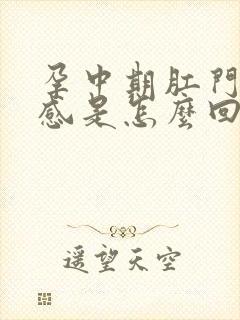 孕中期肛門
感是怎麼回
遥望天空